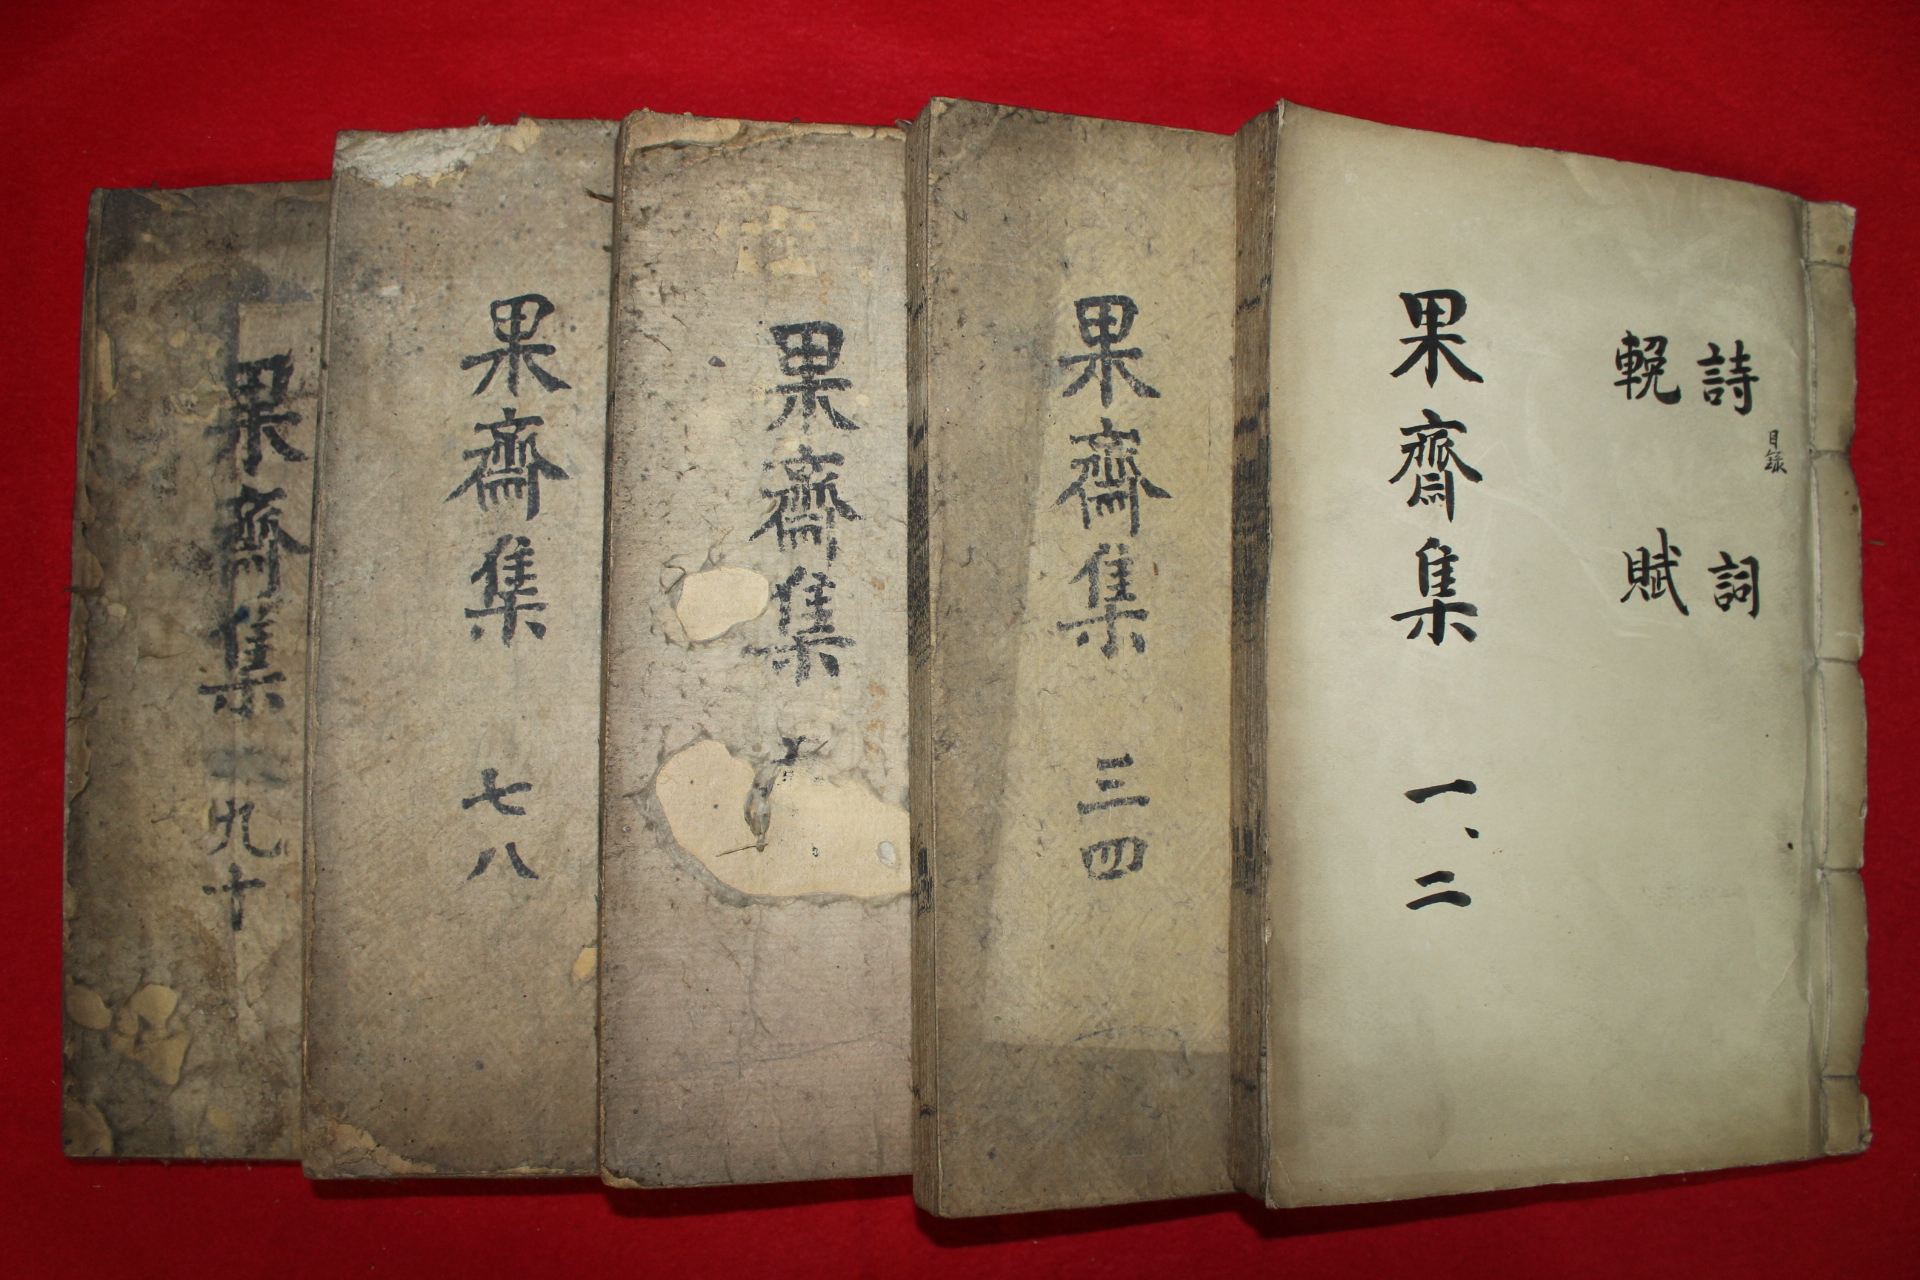 詩 詞
目录
輓 賦
果齋集 一、二
果齋集 三四
果齋集
果齋集 七八
果齋集 九十